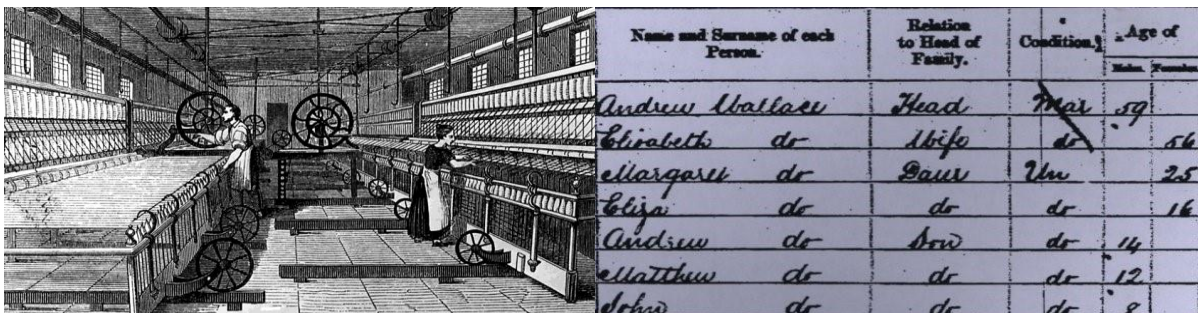 Name and Surname of each Person. Relation to Head of Family. Condition. Age of
Males. Females.
Andrew Wallace Head Mar 59
Elizabeth do Wife do 56
Margaret do Daur Un 25
Eliza do do do 16
Andrew do Son do 14
Matthew do do do 12
John do do do 8